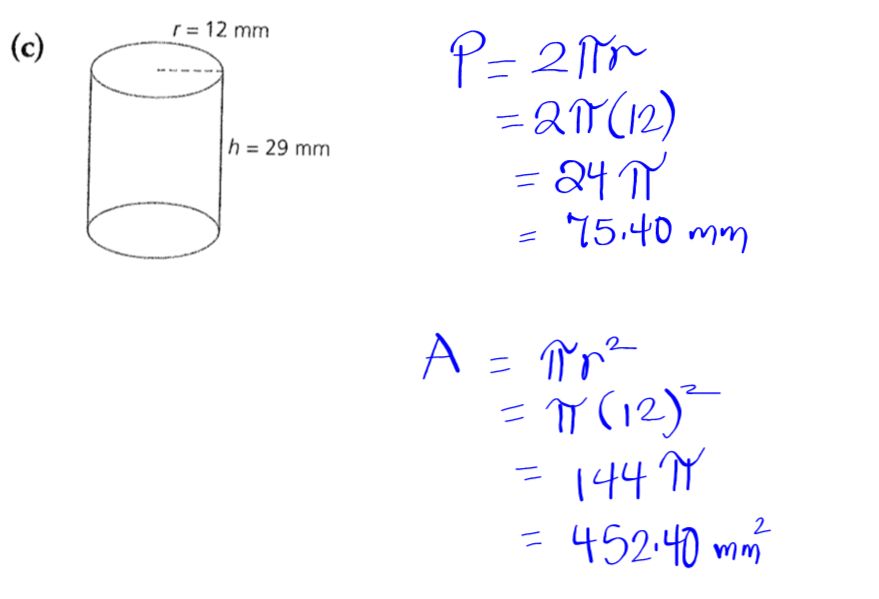 (c)
r = 12 mm
h = 29 mm
P = 2πr
= 2π(12)
= 24 π
= 75.40 mm
A = πr²
= π(12)²
= 144 π
= 452.40 mm²